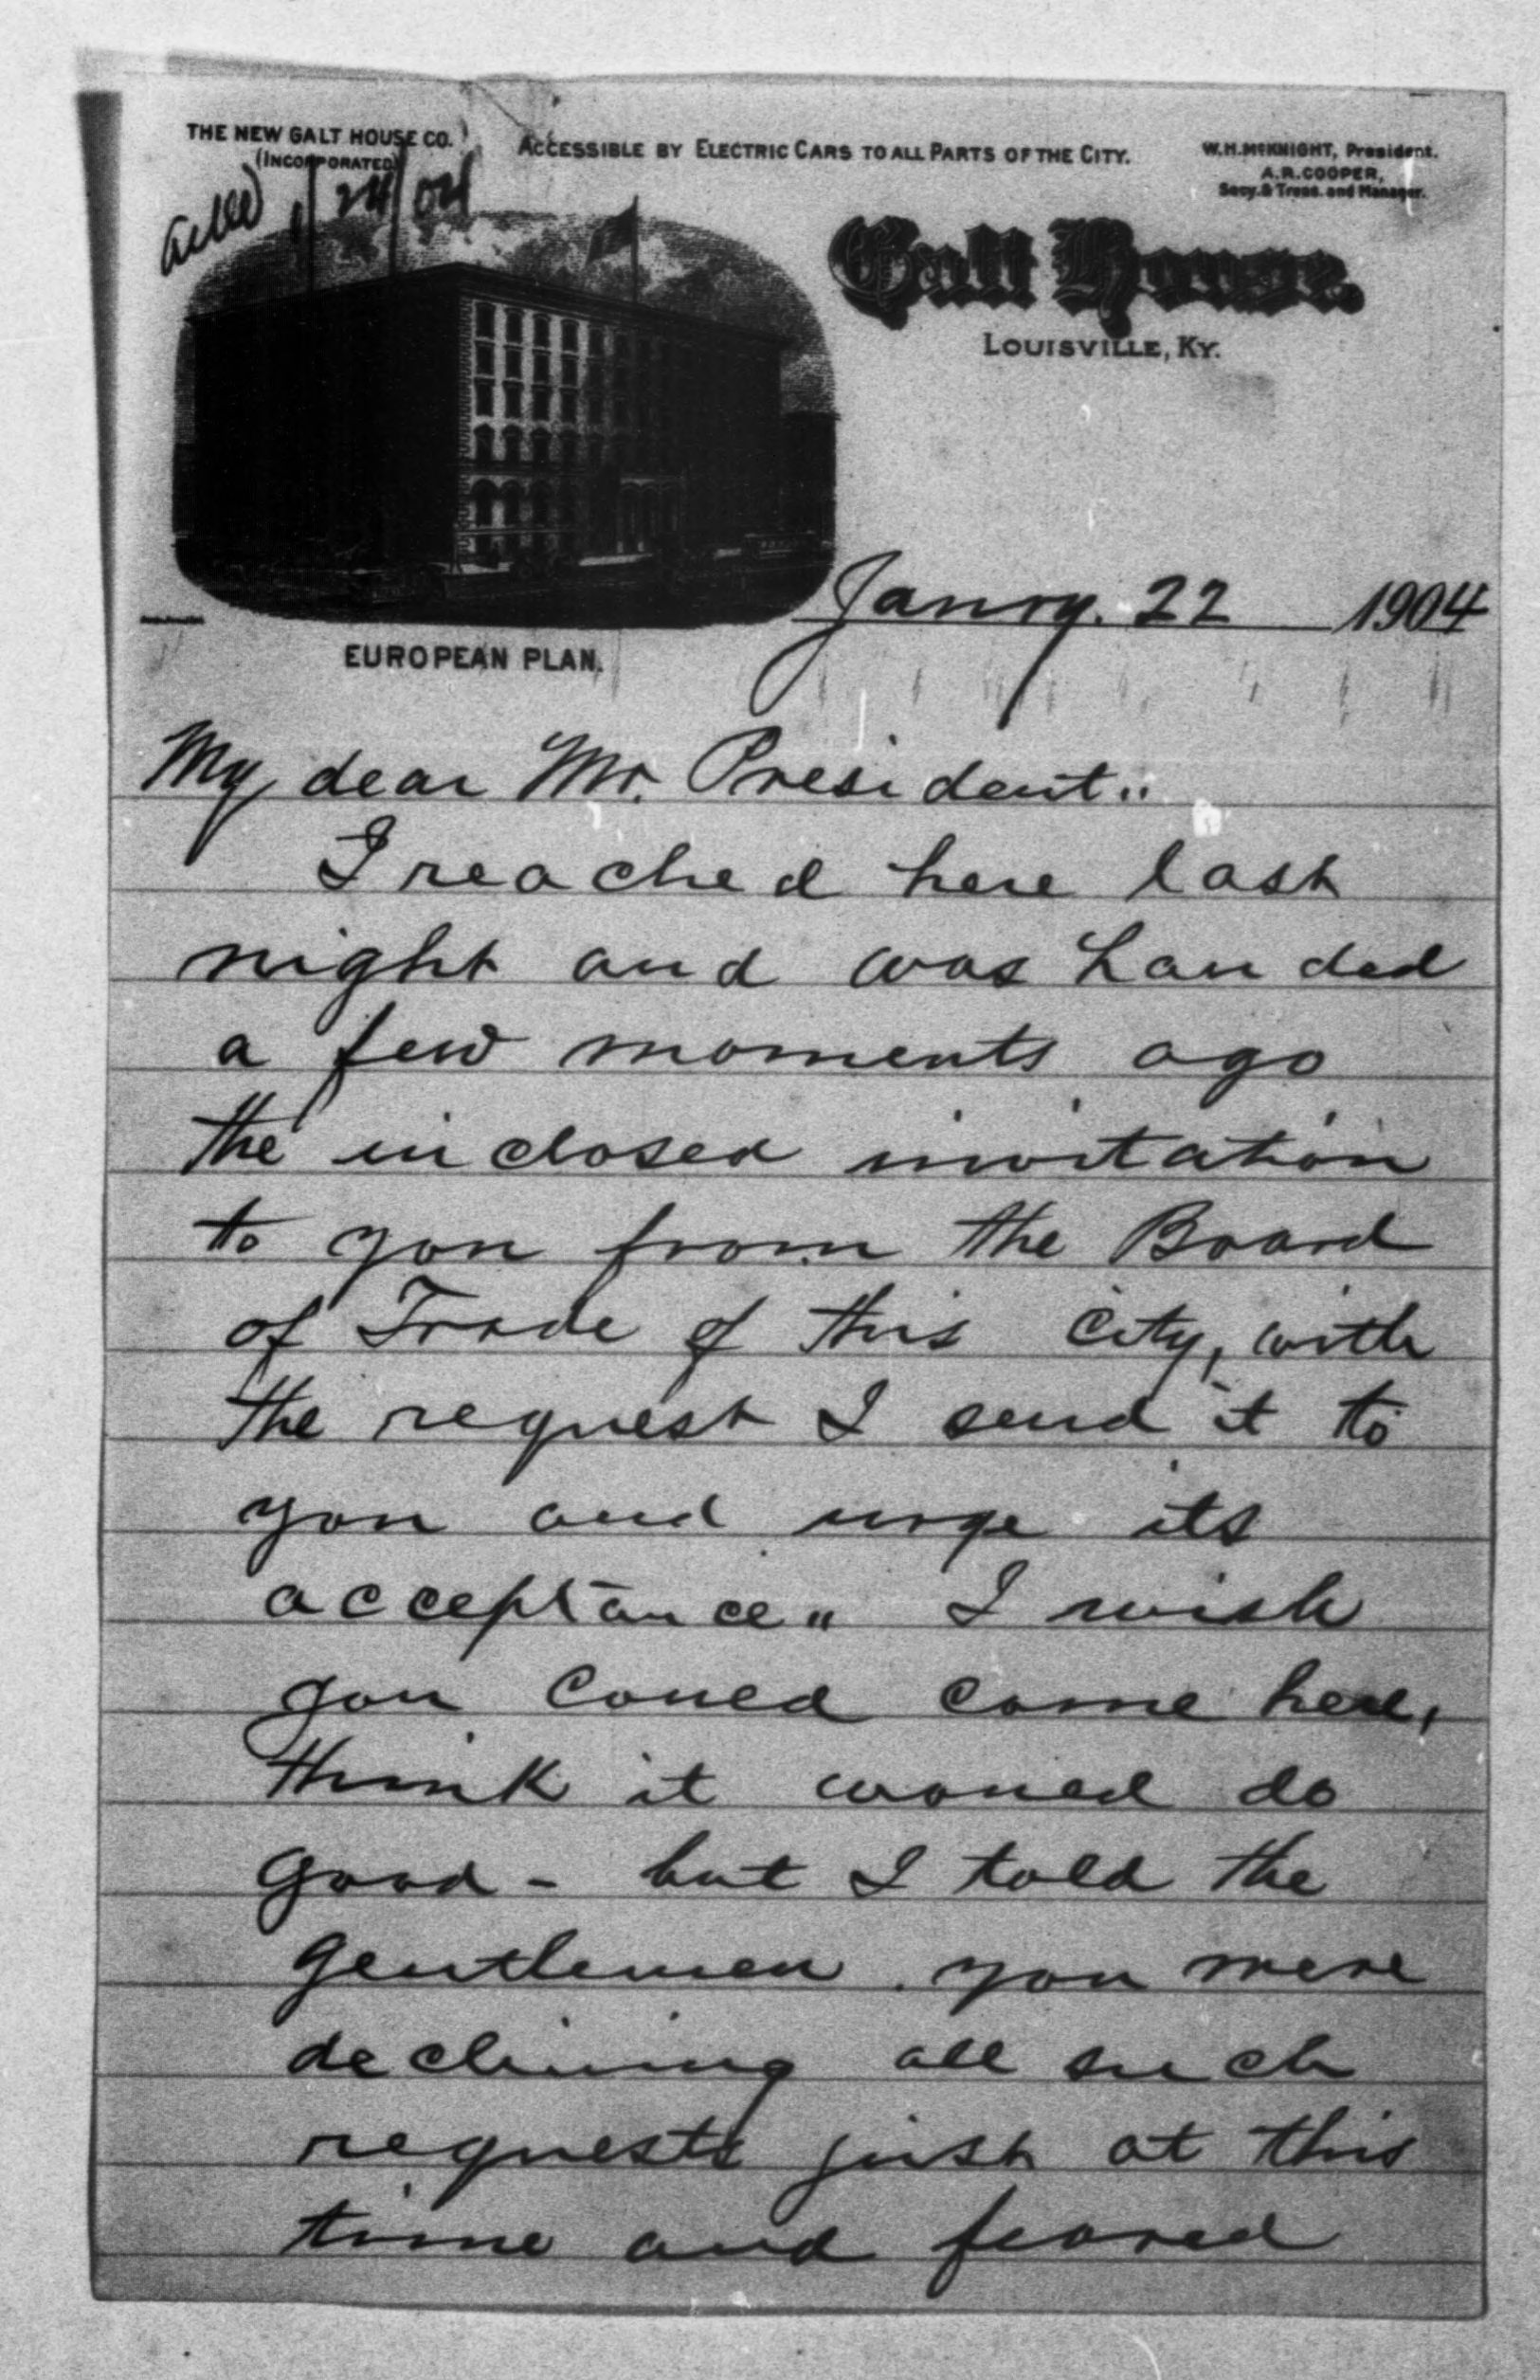 THE NEW GALT HOUSE CO.
(INCORPORATED)
ACCESSIBLE BY ELECTRIC CARS TO ALL PARTS OF THE CITY.
W.H. McKNIGHT, President.
A.R. COOPER,
Secy. & Treas. and Manager.
1/24/04
Galt House.
LOUISVILLE, KY.
Janry. 22 1904
EUROPEAN PLAN.
My dear Mr. President..
I reached here last
night and was handed
a few moments ago
the inclosed invitation
to you from the Board
of Trade of this city, with
the request I send it to
you and urge its
acceptance.. I wish
you could come here,
think it would do
good - but I told the
gentlemen you were
declining all such
requests just at this
time and feared